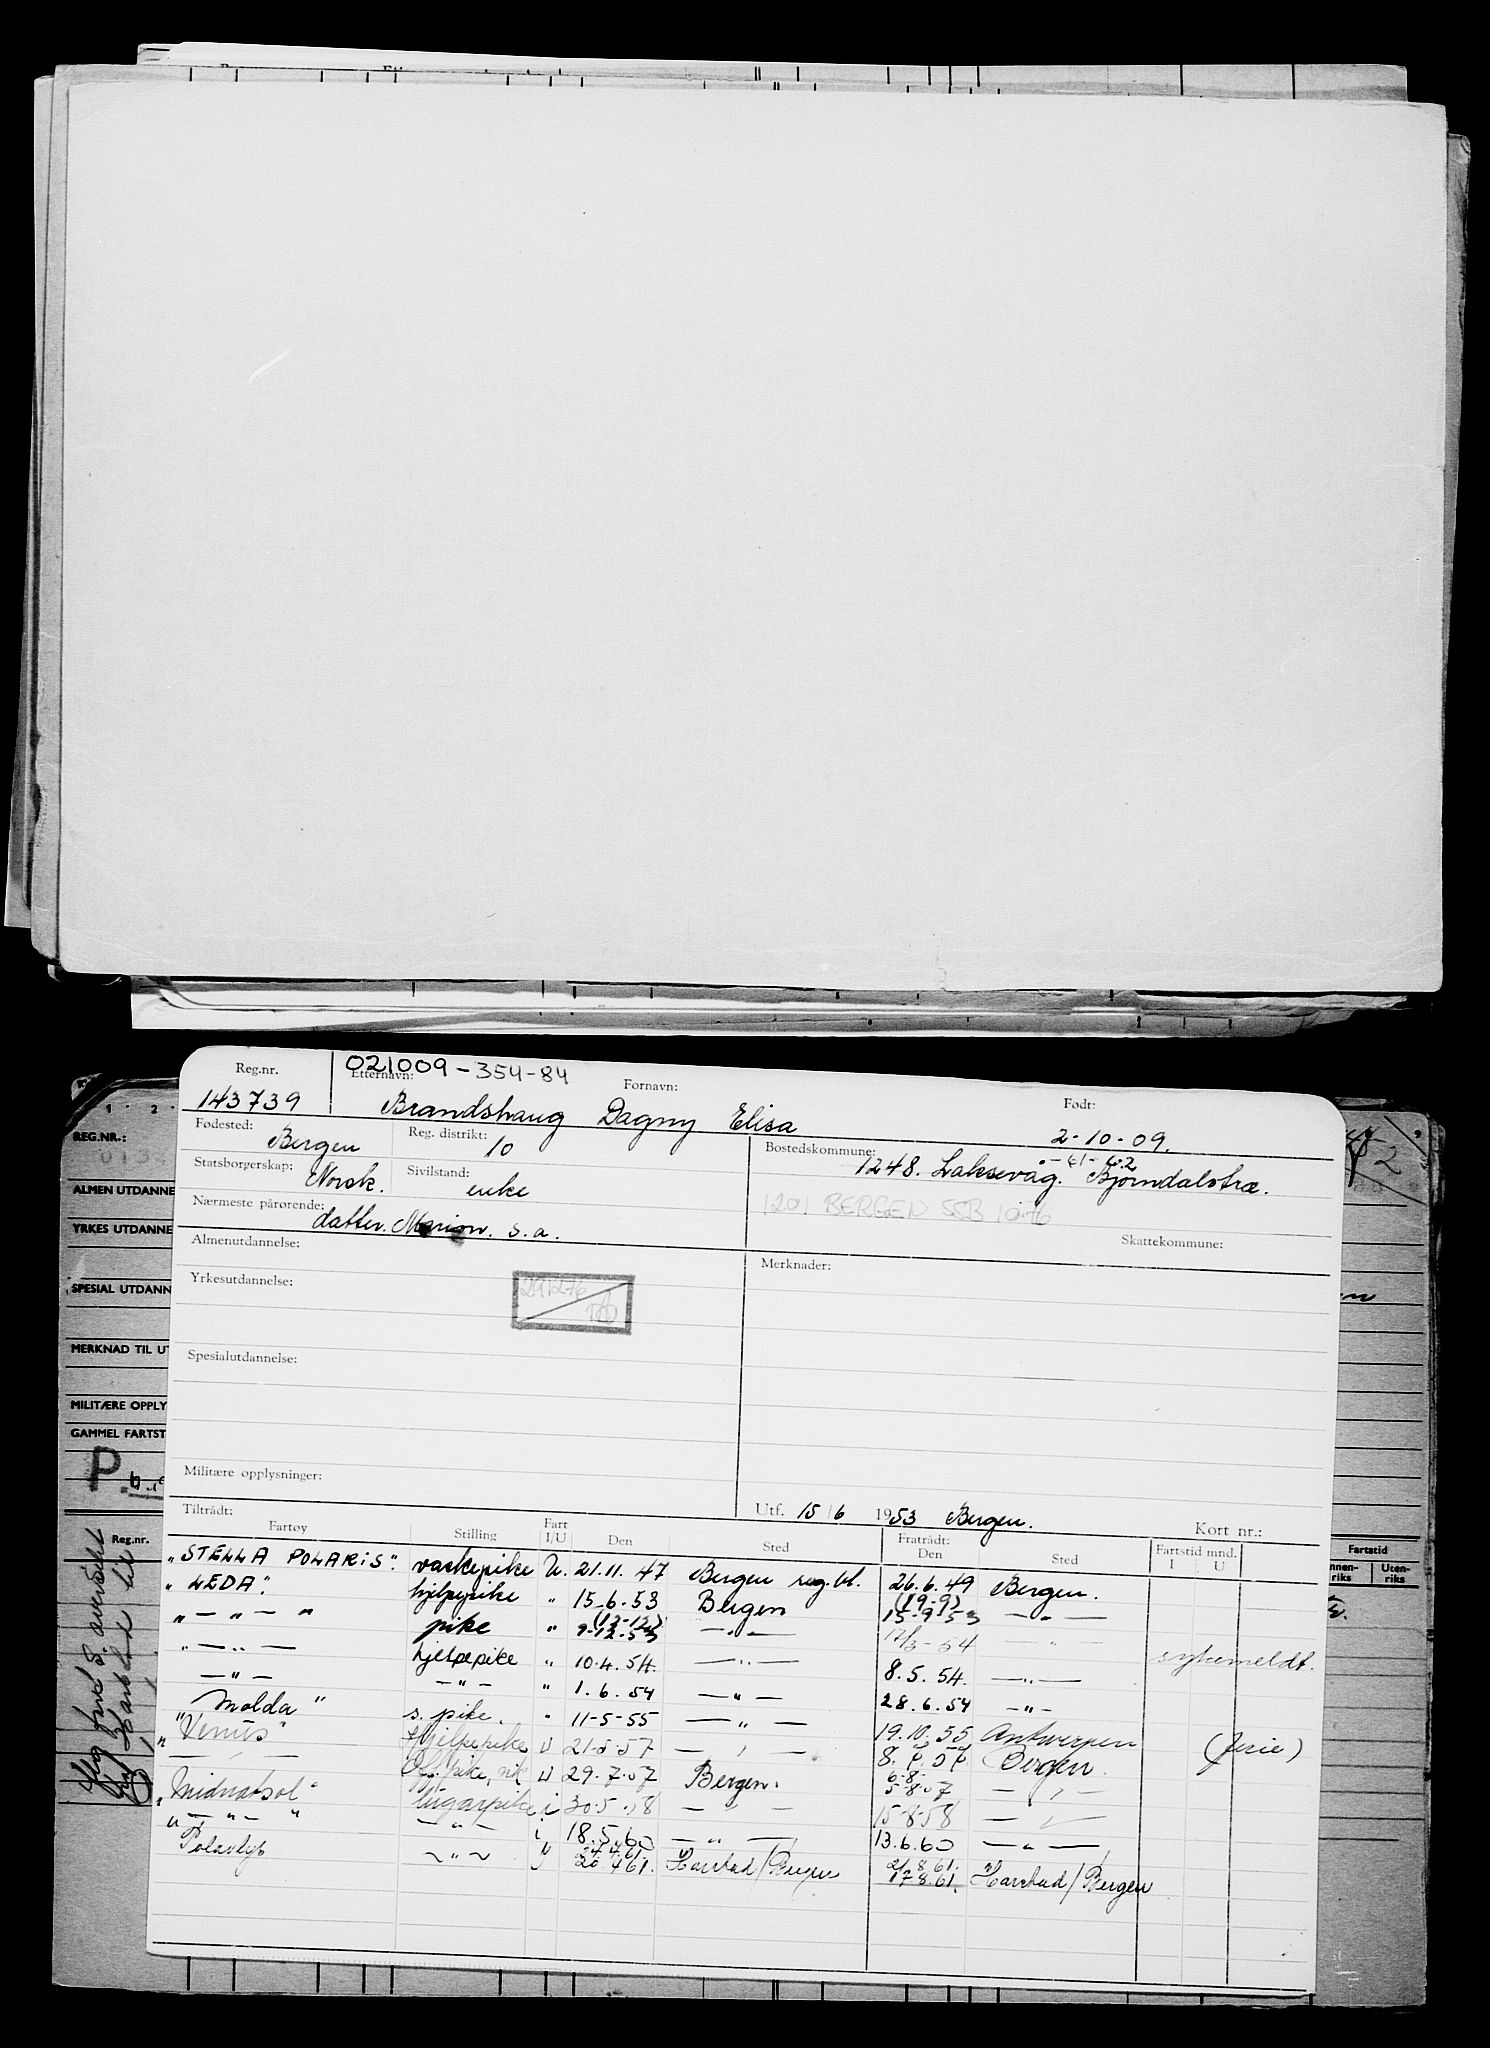 Reg.nr. 021009-354-84
Etternavn: Fornavn: Født:
143739 Brandshaug Dagny Elisa 2-10-09.
Fødested: Bergen Reg. distrikt: 10 Bostedskommune: -61-62
1248. Laksevåg. Bjørndalstræ.
Statsborgerskap: Norsk. Sivilstand: enke
1201 BERGEN SSB 10.76
Nærmeste pårørende: datter. Marion. s.a.
Skattekommune:
Almenutdannelse: Merknader:
Yrkesutdannelse: 291276
Spesialutdannelse:
Militære opplysninger:
Utf. 15/6 1953 Bergen.
Kort nr.:
Tiltrådt: Fratrådt:
Fartøy Stilling Fart I/U Den Sted Den Sted Fartstid mnd. I U
"STELLA POLARIS". vaskepike U. 21.11.47 Bergen reg.bl. 26.6.49 Bergen.
"LEDA". hjelpepike " 15.6.53 Bergen (19-9) 15-9-53 — " —
" — " — " pike " (12-12) 9-12-53 — " — 17/3-54 — " —
" — " — hjelpepike " 10.4.54. — " — 8.5.54. — " — sykemeldt.
— " — — " — " 1.6.54 — " — 28.6.54 — " —
"Molda" s. pike. " 11-5-55 — " — 19.10.55 Antwerpen
"Venus" Hjelpepike U 21.5.57 — " — Bergen. (ferie)
— " — U 29.7.57 Bergen. 6-8- 5-8-57 — " —
"Midnatsol" lugarpike i 30.5.58 — " — 15-8-58 — " —
" — " — " — " — i 18.5.60 — " — 13.6.60 — " —
Polarlys ~ " ~ 24.4.61. 20 4 61. Harstad/Bergen 21.8.61. 17 8.61. Harstad/Bergen
1 · 2 ·
REG.NR.:
ALMEN UTDANNE
YRKES UTDANNE
SPESIAL UTDANN
MERKNAD TIL UT
MILITÆRE OPPLY
GAMMEL FARTST
P.
Reg.nr.
Fartstid
nnenriks Utenriks